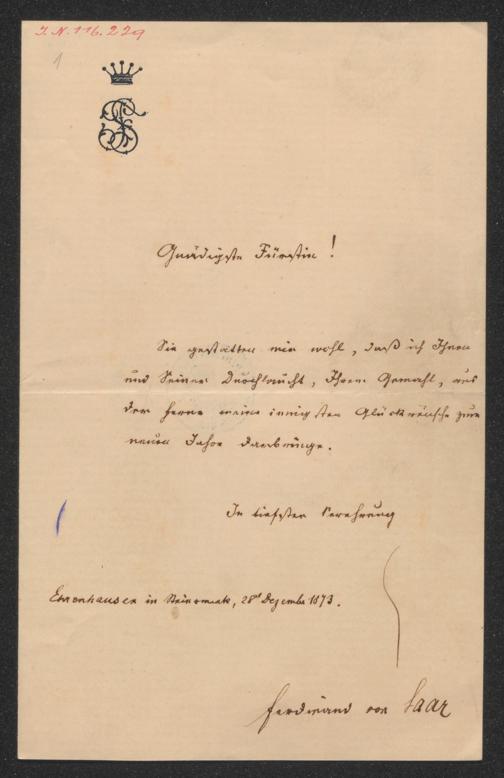 I. N. 116.229
1
Gnädigste Fürstin!
Sie gestatten mir wohl, daß ich Ihnen
und Seiner Durchlaucht, Ihrem Gemahl, aus
der Ferne meine innigsten Glückwünsche zum
neuen Jahre darbringe.
In tiefster Verehrung
Ehrenhausen in Steiermark, 28t Dezember 1873.
Ferdinand von Saar